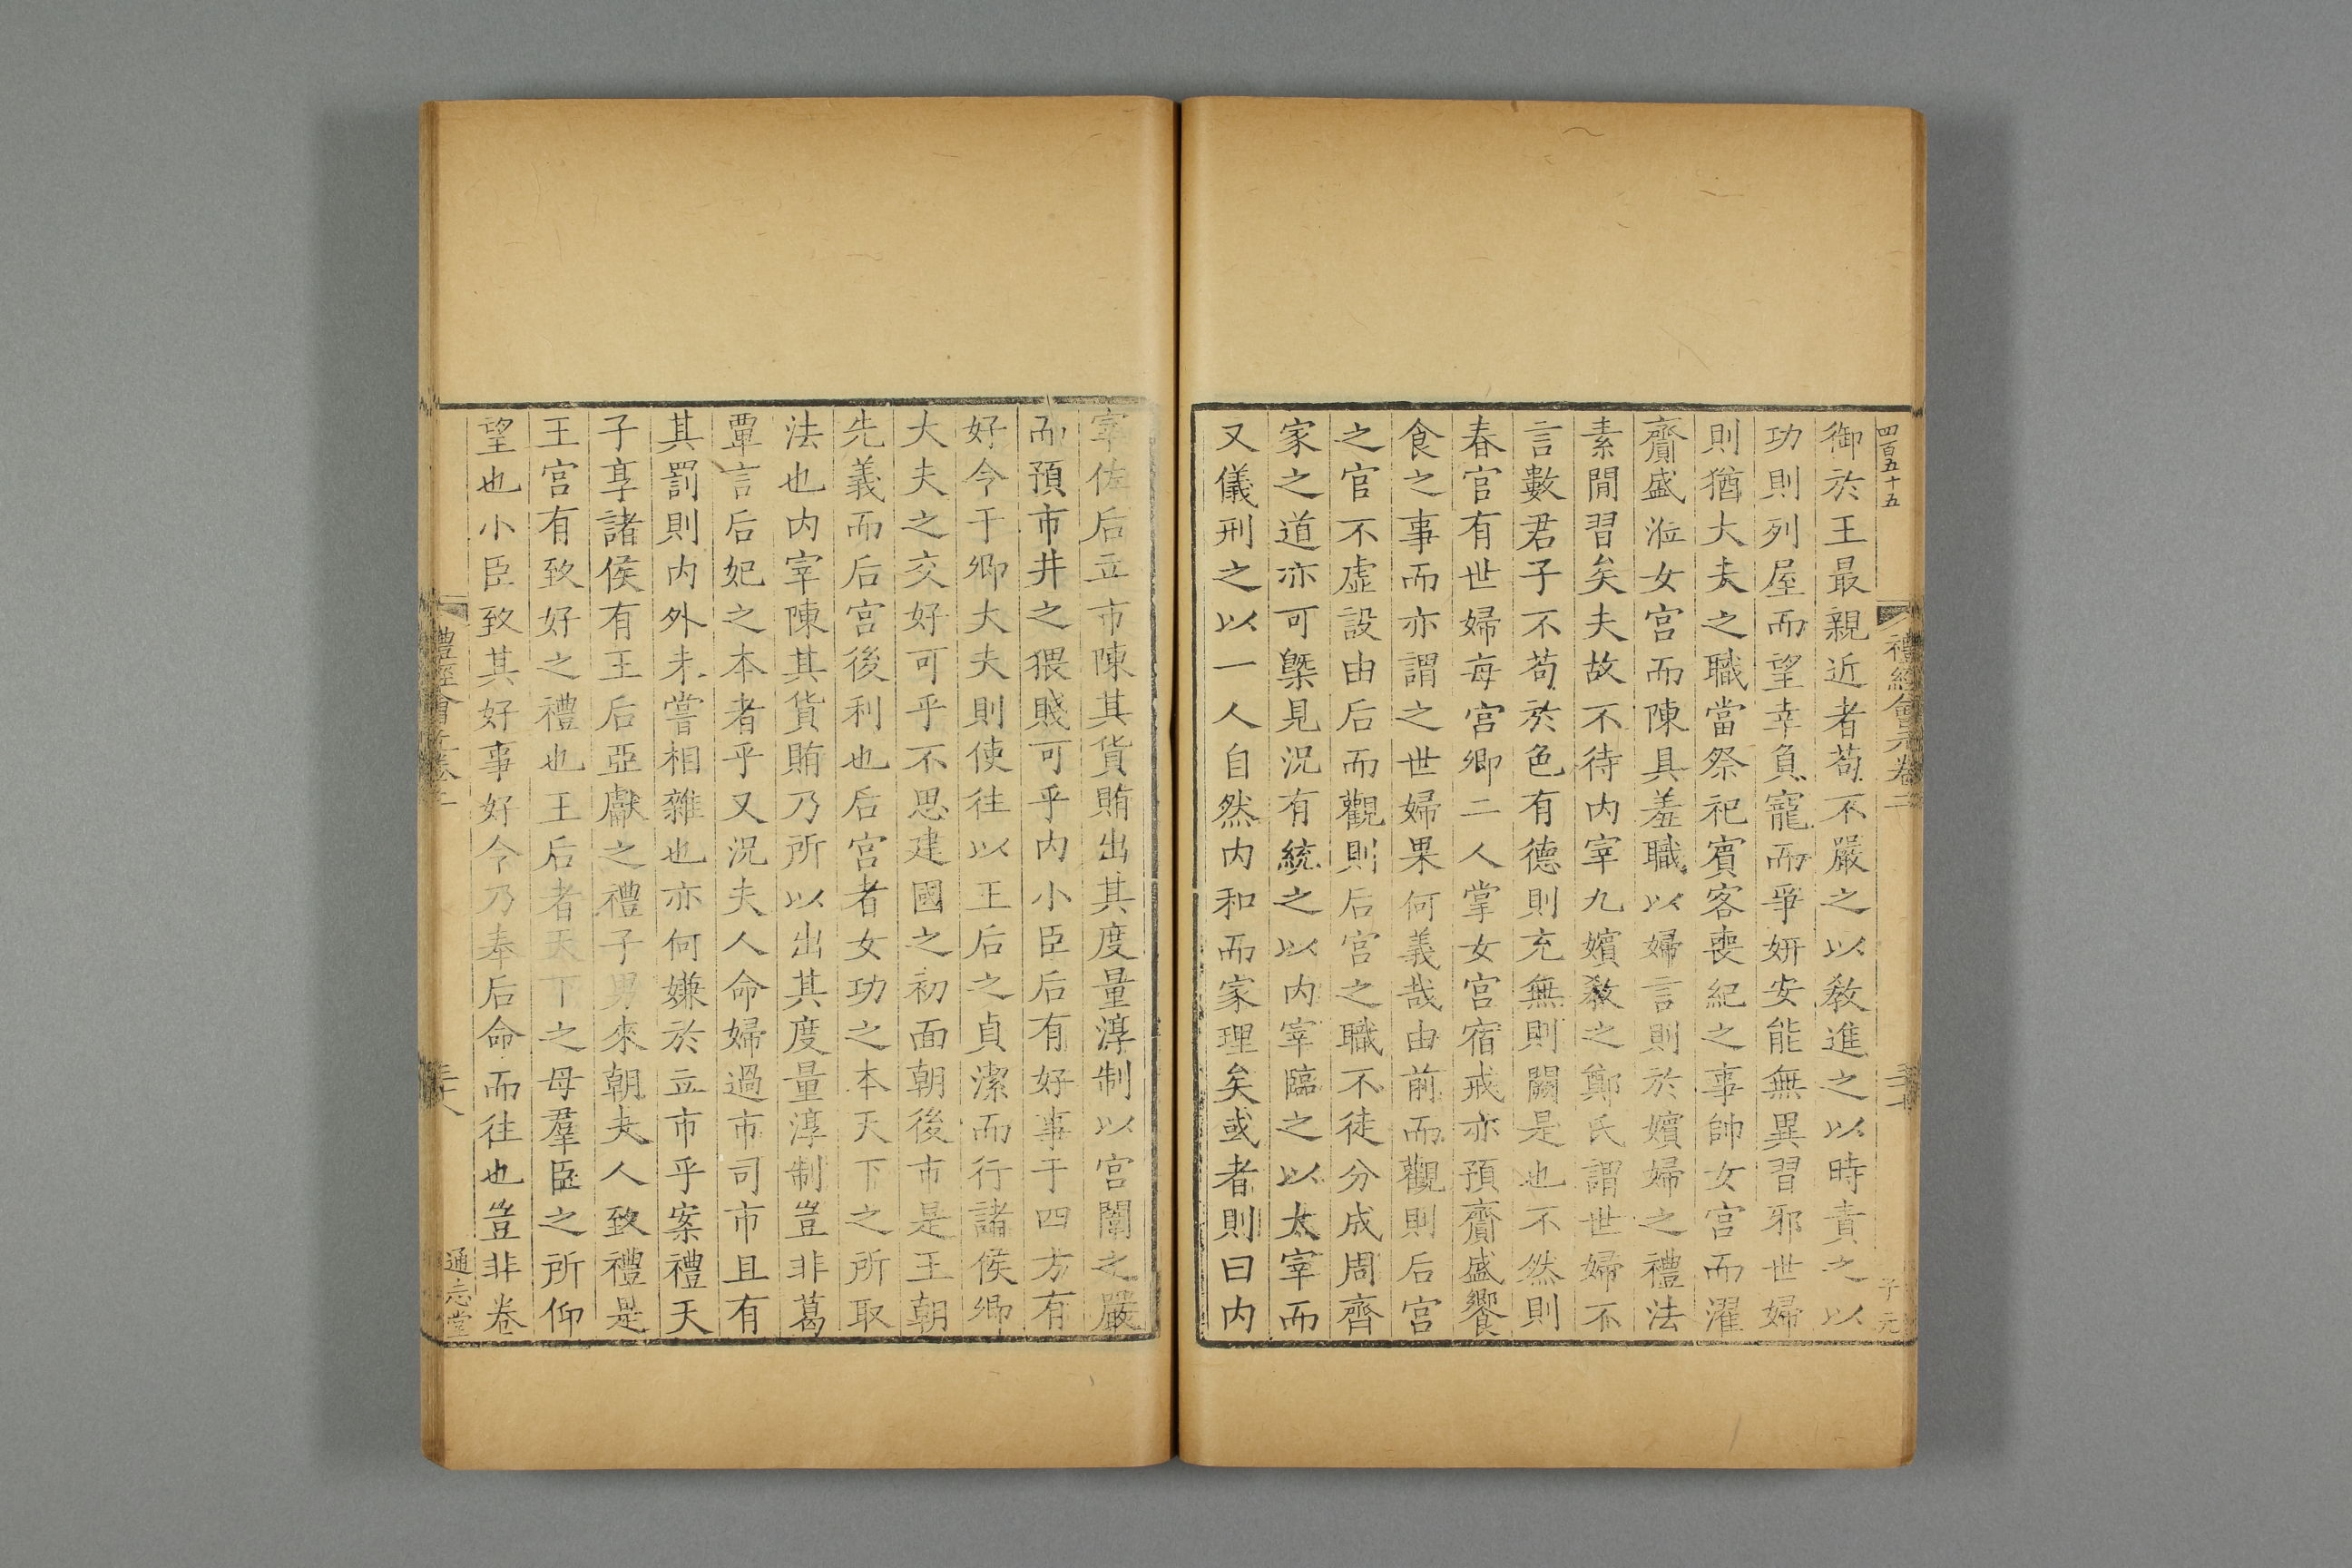 四百五十五
禮經會元卷二
子元
御於王最親近者苟不嚴之以敎進之以時責之以
功則列屋而望幸負寵而爭妍安能無異習邪世婦
則猶大夫之職當祭祀賓客喪紀之事帥女宮而濯
齎盛涖女宮而陳具羞職以婦言則於嬪婦之禮法
素閒習矣夫故不待内宰九嬪敎之鄭氏謂世婦不
言數君子不苟於色有德則充無則闕是也不然則
春官有世婦每宮卿二人掌女宮宿戒亦預齎盛饗
食之事而亦謂之世婦果何義哉由前而觀則后宮
之官不虚設由后而觀則后宮之職不徒分成周齊
家之道亦可槩見況有統之以内宰臨之以太宰而
又儀刑之以一人自然内和而家理矣或者則曰内
宰佐后立市陳其貨賄出其度量淳制以宮闈之嚴
而預市井之猥賤可乎内小臣后有好事于四方有
好令于卿大夫則使往以王后之貞潔而行諸侯卿
大夫之交好可乎不思建國之初面朝後市是王朝
先義而后宮後利也后宮者女功之本天下之所取
法也内宰陳其貨賄乃所以出其度量淳制豈非葛
覃言后妃之本者乎又況夫人命婦過市司市且有
其罰則内外未嘗相雜也亦何嫌於立市乎案禮天
子享諸侯有王后亞獻之禮子男來朝夫人致禮是
王宮有致好之禮也王后者天下之母羣臣之所仰
望也小臣致其好事好令乃奉后命而往也豈非卷
禮經會元卷二
三十八
通志堂